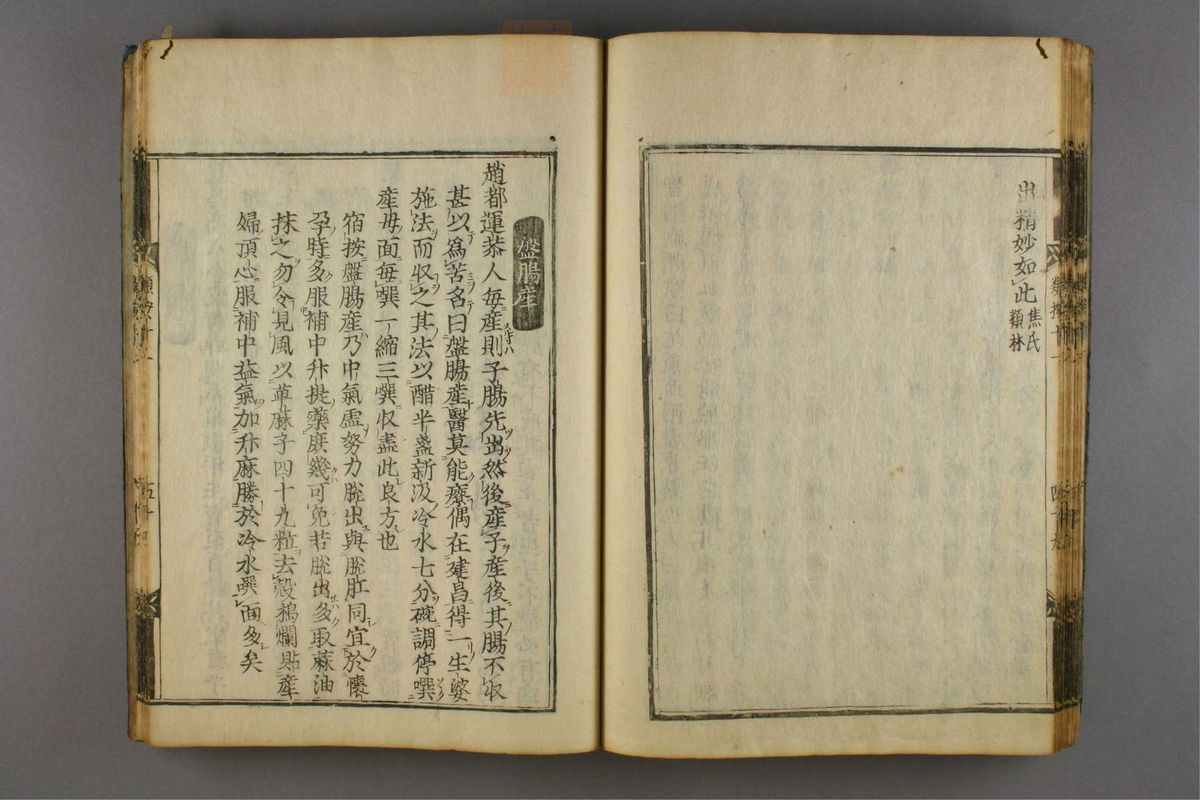 出精妙如此焦氏
類林
盤腸産
趙都運恭人每産則子腸先出然後産子産後其腸不收
甚以爲苦名曰盤腸産醫莫能療偶在建昌得一生婆
施法而収之其法以醋半盞新汲冷水七分碗調停噀
産母面每噀一縮三噀収盡此良方也
宿按盤腸産乃中氣虛努力脫出與脫肛同宜於懷
孕時多服補中升提藥庶幾可免若脫出多取蔴油
抹之勿令見風以萆麻子四十九粒去殼搗爛貼産
婦頂心服補中益氣加升麻勝於冷水噀面多矣